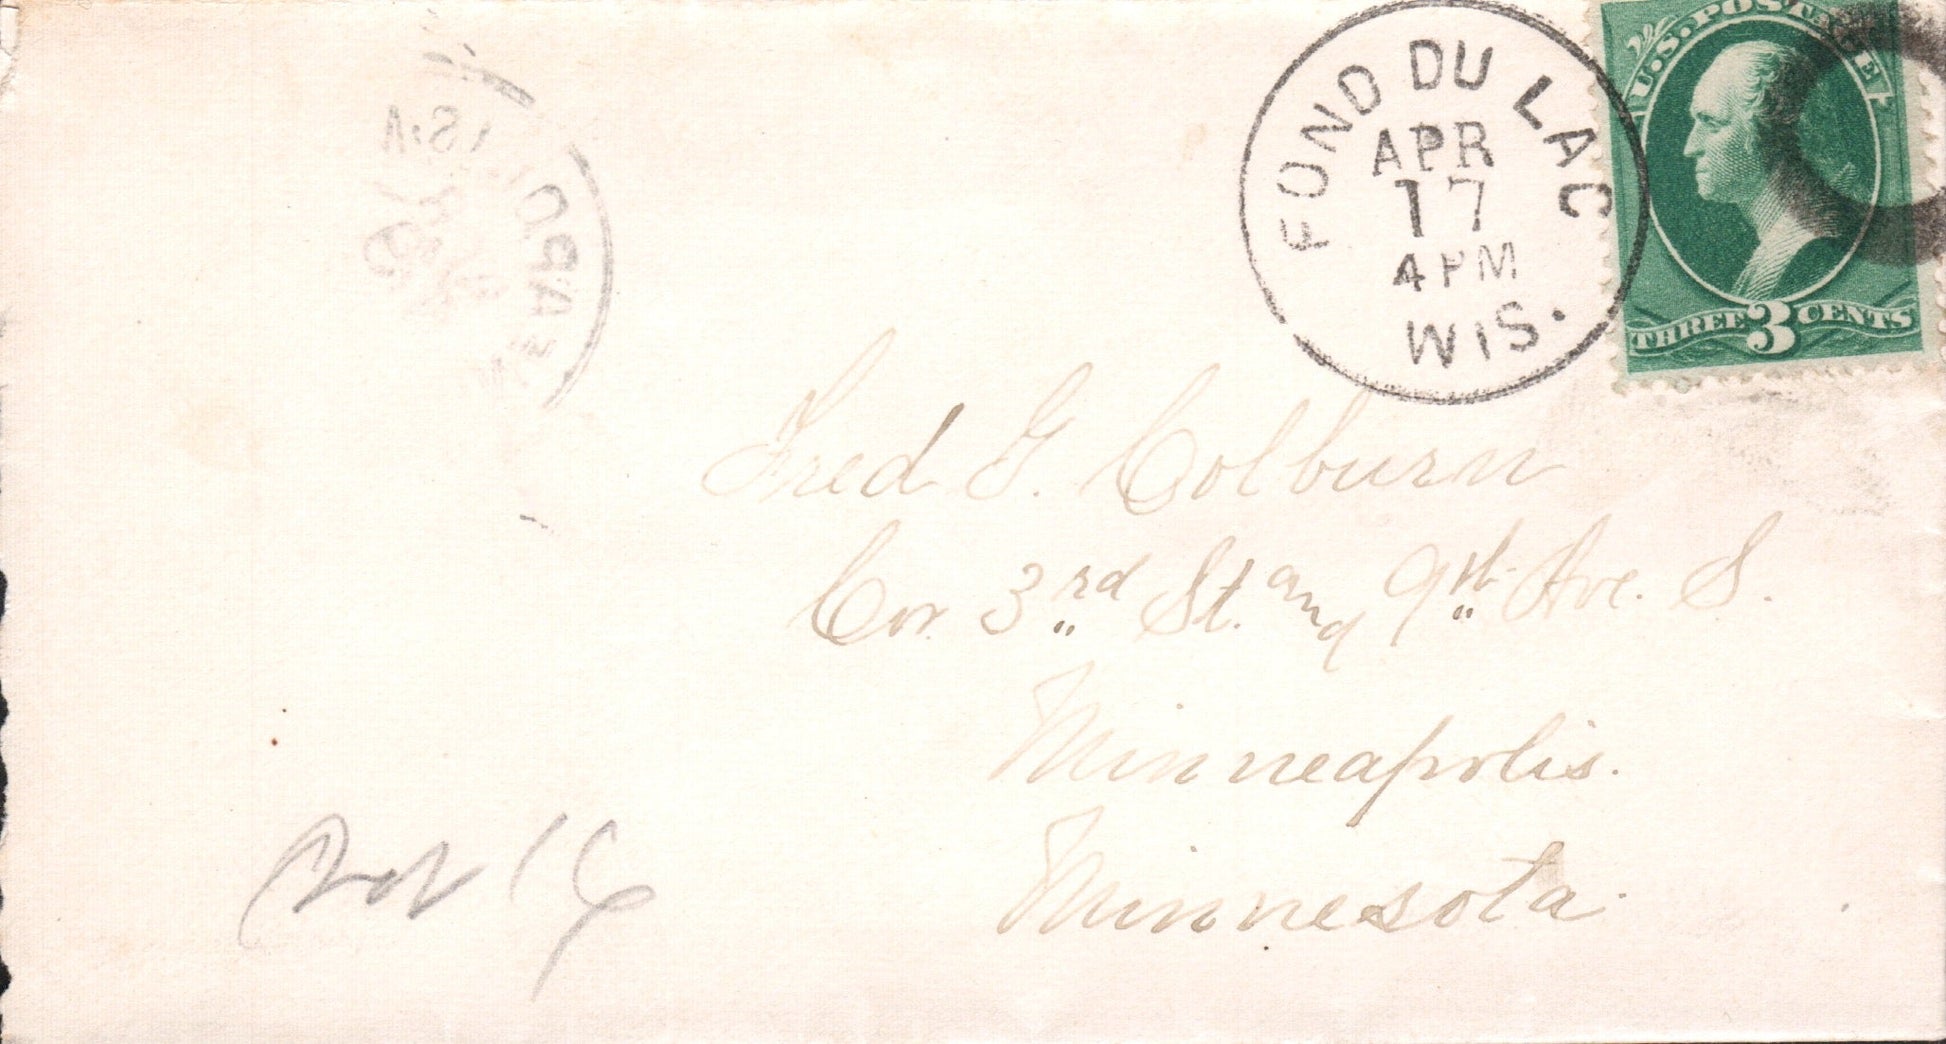 FOND DU LAC
APR
17
4 PM
WIS.
U.S. POSTAGE
THREE 3 CENTS
Fred G. Colburn
Cor. 3rd St. and 9th Ave. S.
Minneapolis.
Minnesota.